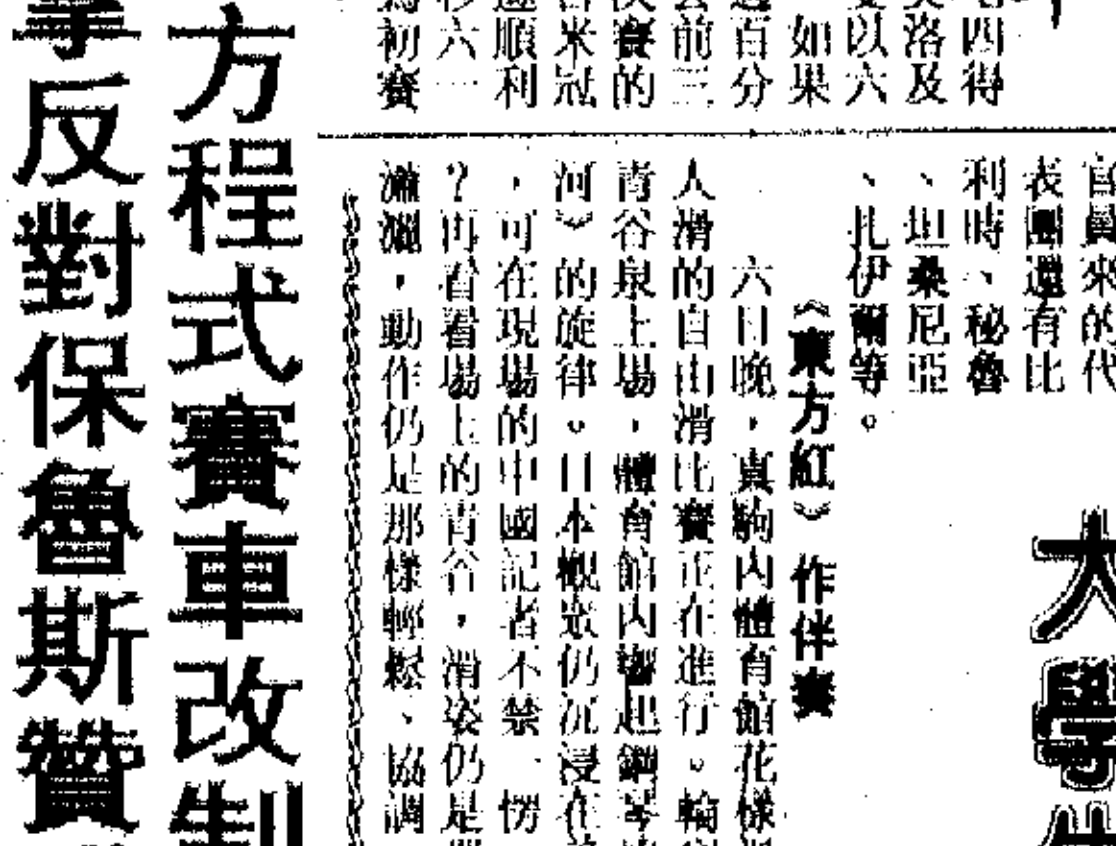 四得
洛及
以六
如果
百分
前三
賽的
米冠
順利
六一
初賽
官員來的代
表團還有比
利時、秘魯
、坦桑尼亞
、扎伊爾等。
《東方紅》作伴奏
六日晚，真駒內體育館花樣
人滑的自由滑比賽正在進行。輪
青谷泉上場，體育館內響起鋼琴
河》的旋律。日本觀眾仍沉浸在
，可在現場的中國記者不禁一愣
？再看看場上的青谷，滑姿仍是
瀟灑，動作仍是那樣輕鬆、協調
大學
方程式賽車改制
反對保魯斯贊